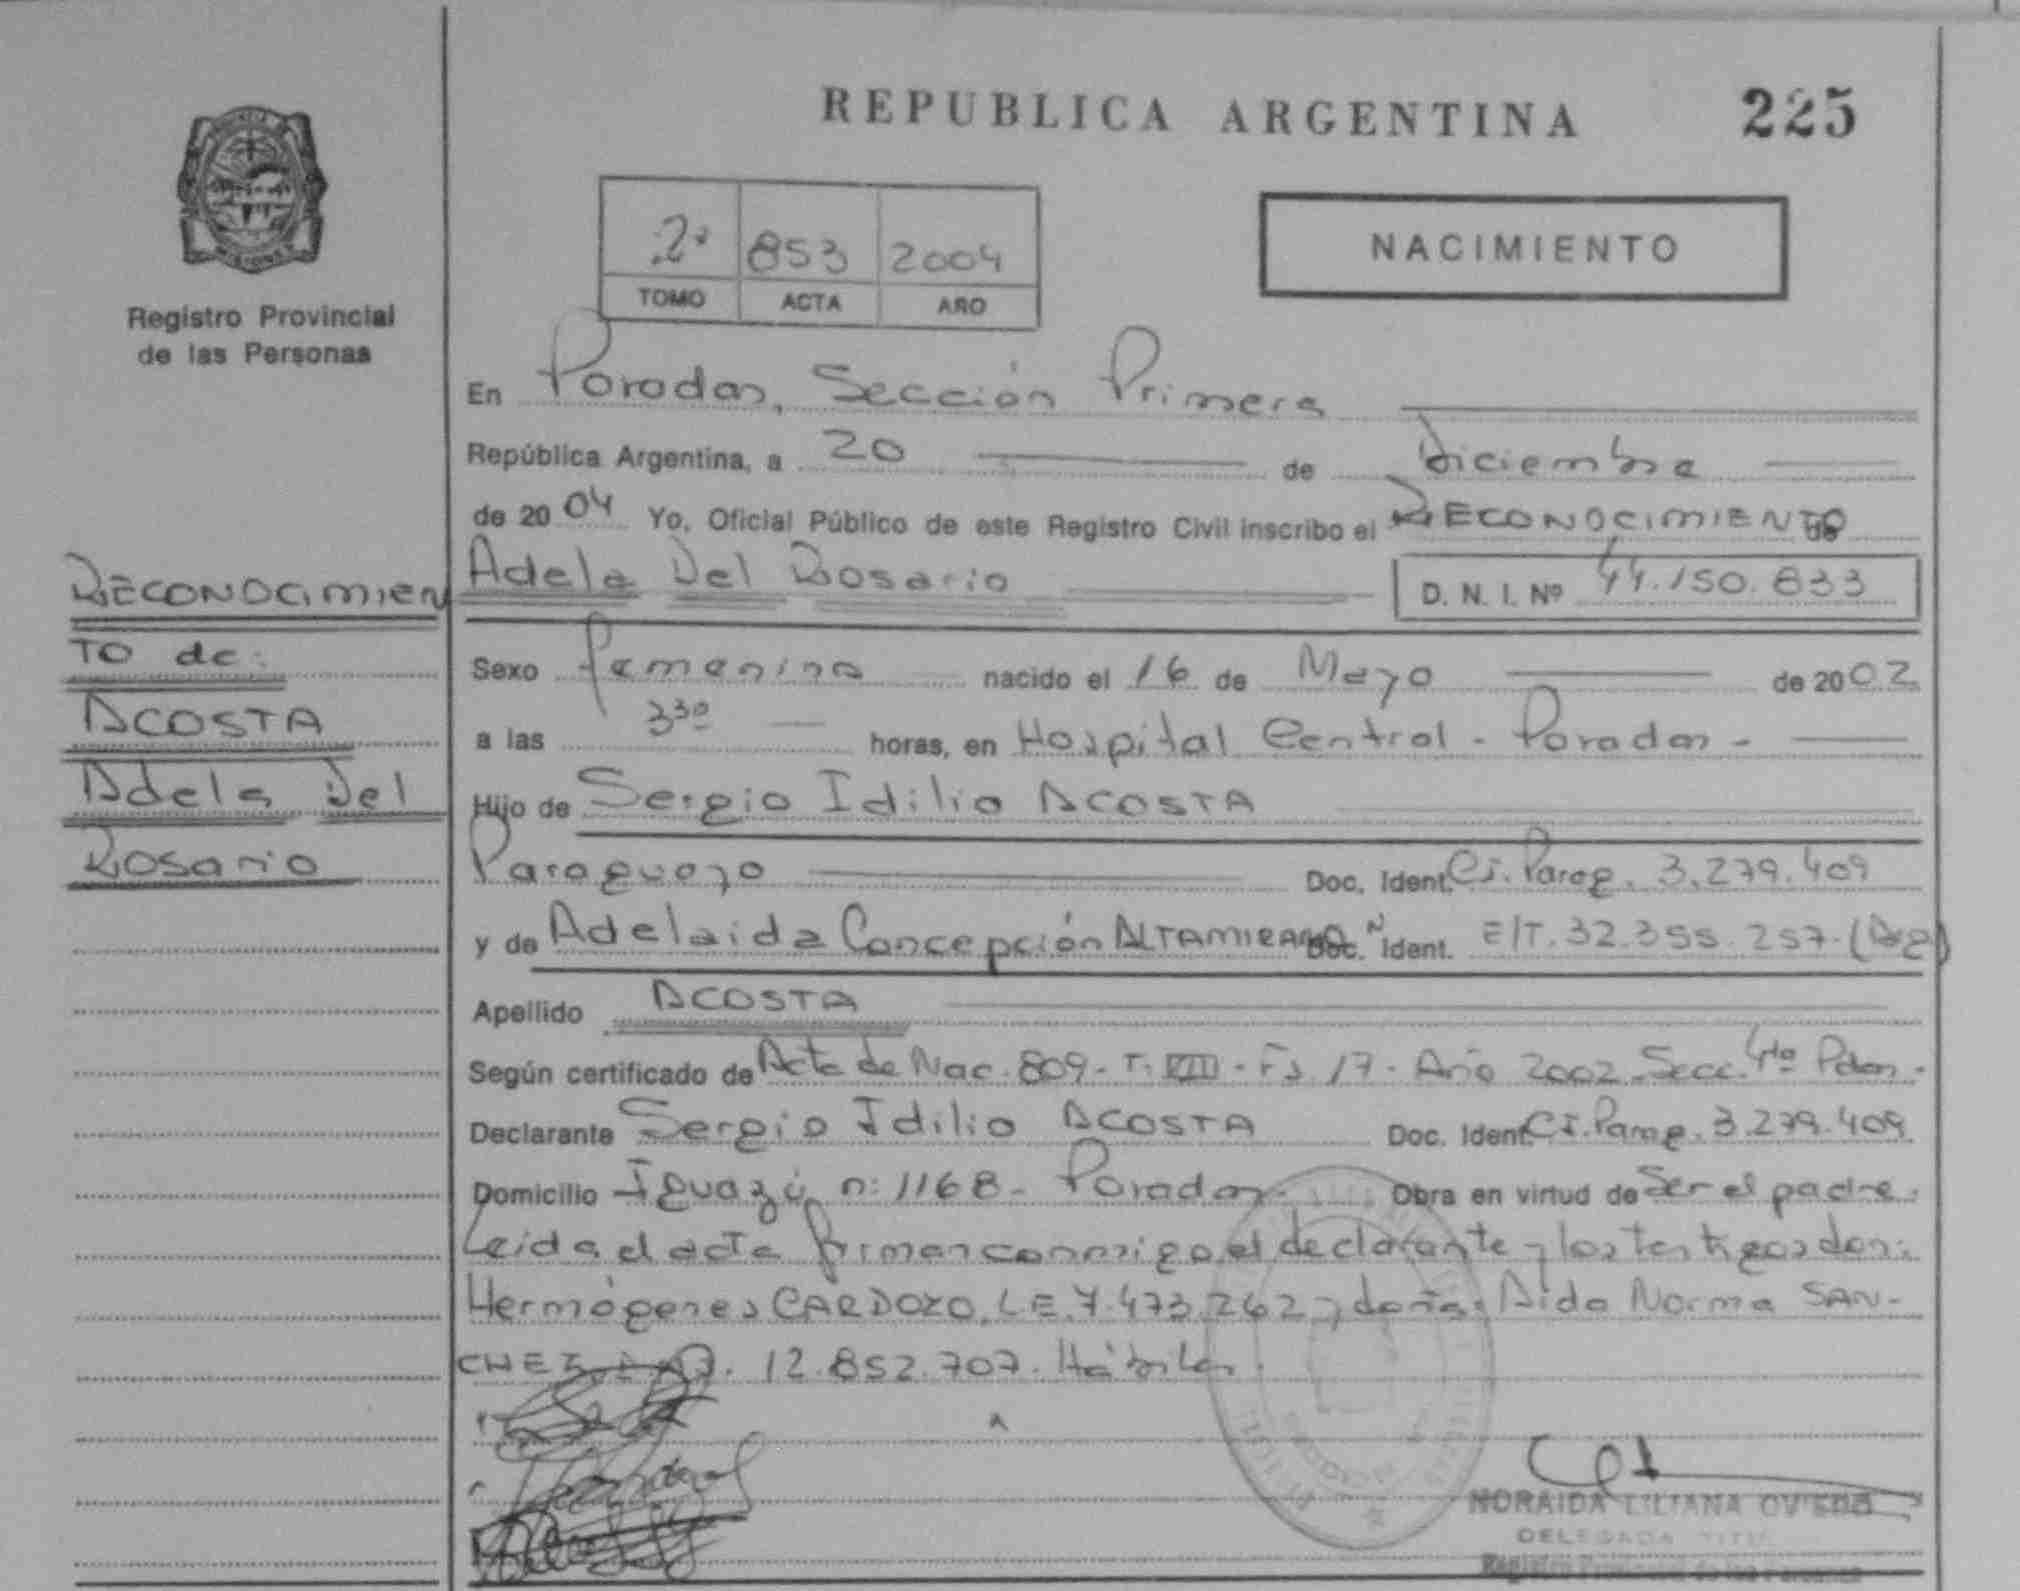 REPUBLICA ARGENTINA 225
2º 853 2004
TOMO ACTA AÑO
NACIMIENTO
Registro Provincial
de las Personas
En Posadas, Sección Primera
República Argentina, a 20 de Diciembre
de 2004 Yo, Oficial Público de este Registro Civil inscribo el RECONOCIMIENTO de
Adela Del Rosario D. N. I. Nº 44.150.833
RECONOCIMIEN
TO de:
ACOSTA
Adela Del
Rosario
Sexo femenino nacido el 16 de Mayo de 2002
a las 3³⁰ horas, en Hospital Central - Posadas -
Hijo de Sergio Idilio ACOSTA
Paraguayo Doc. Ident. C.I. Parag. 3.279.409
y de Adelaida Concepción ALTAMIRANO Doc. Ident. E/T. 32.355.257. (Arg)
Apellido ACOSTA
Según certificado de Acta de Nac. 809 - T. VIII - Fs 17 - Año 2002 - Secc. 4ta Pdas -
Declarante Sergio Idilio ACOSTA Doc. Ident. C.I. Parag. 3.279.409
Domicilio Iguazú nº 1168 - Posadas - Obra en virtud de Ser el padre.
Leida el acta firman conmigo el declarante y los testigos don:
Hermógenes CARDOZO, L.E. 7.473.262 y doña: Aida Norma SAN-
CHEZ, 12.852.707. Hábiles.
NORAIDA LILIANA OVIEDO
DELEGADA
Registro Provincial de las Personas